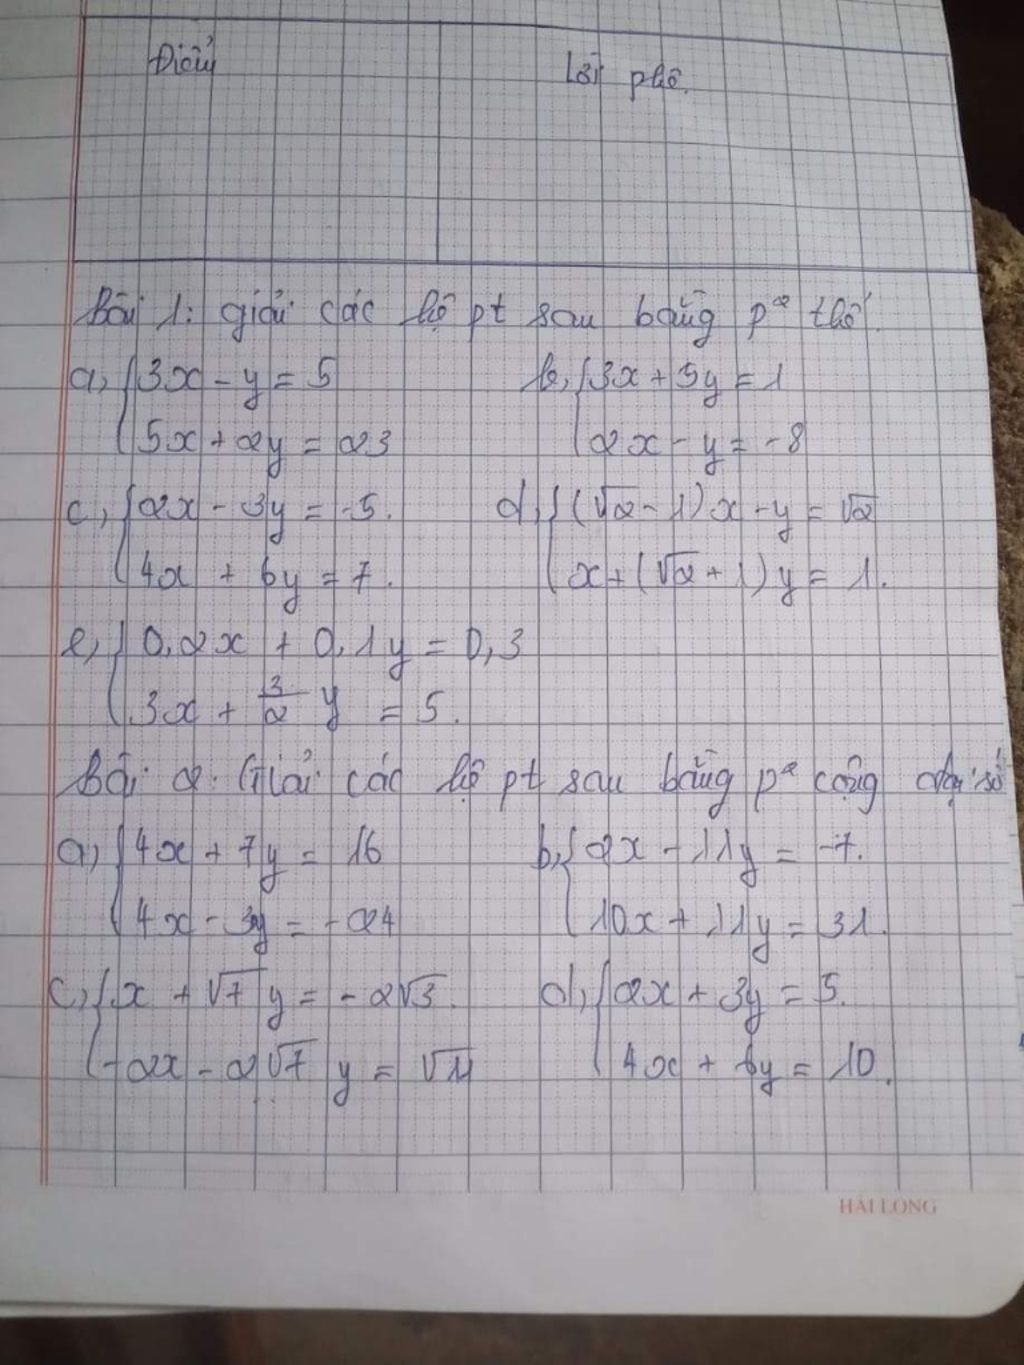 Điểm
Lời phê.
Bài 1: giải các hệ pt sau bằng p² thế.
a, { 3x - y = 5
5x + 2y = 23
b, { 3x + 5y = 1
2x - y = -8
c, { 2x - 3y = -5.
4x + 6y = 7.
d, { (√2 - 1)x - y = √2
x + (√2 + 1)y = 1.
e, { 0,2x + 0,1y = 0,3
3x + 3/2 y = 5.
Bài 2: Giải các hệ pt sau bằng p² cộng đại số
a, { 4x + 7y = 16
4x - 3y = -24
b, { 2x - 11y = -7.
10x + 11y = 31.
c, { x + √7 y = -2√3.
-2x - 2√7 y = √11
d, { 2x + 3y = 5.
4x + 6y = 10.
HẢI LONG